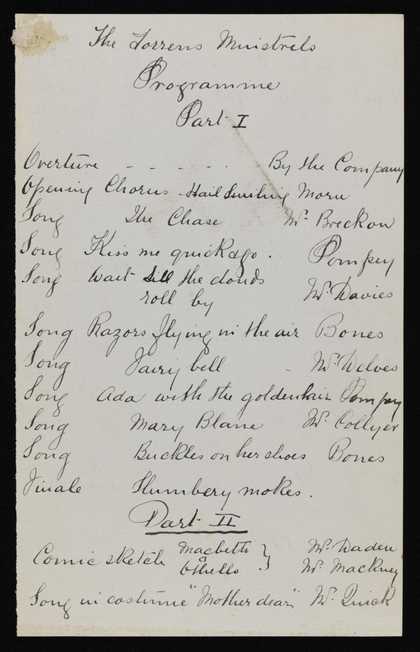 The Torrens Minstrels
Programme
Part I
Overture - - - - - - By the Company
Opening Chorus Hail Smiling Morn
Song The Chase Mr. Breckon
Song Kiss me quick & go. Pompey
Song Wait till the clouds
roll by Mr. Davies
Song Razors flying in the air Bones
Song Fairy bell - Mr. Welves
Song Ada with the golden hair Pompey
Song Mary Blane Mr. Collyer
Song Buckles on her shoes Bones
Finale
Part II
Comic sketch Macbeth } Mr. Daden
& Othello Mr. Mackney
Song in costume "Mother dear" Mr. Quick